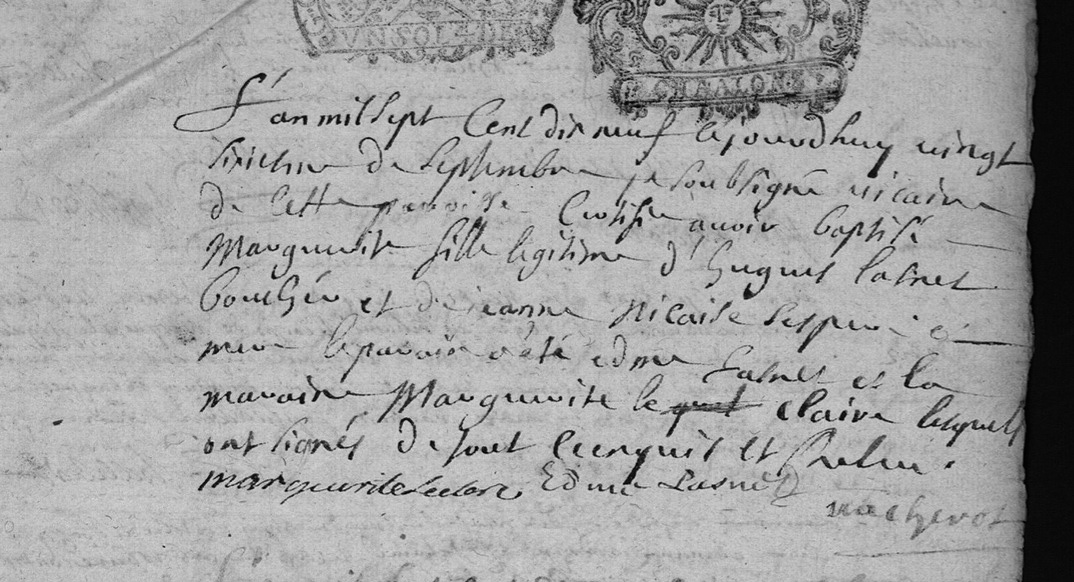 UN SOL 4 DE
CHAALONS
L'an mil sept Cent dix neuf Cejourdhuy vingt
sixiesme de Septembre je soubsigné vicaire
de Cette paroisse Certifie avoir baptisé
Marguerite fille legitime d'hugues Lasnet
boucher et de jeanne Nicaise ses pere et
mere le parain a été edme Lasnet et la
maraine Marguerite le claire lesquels
ont signés de tout ce enquis et
marguerite Leclerc Edme Lasnet
vachevot